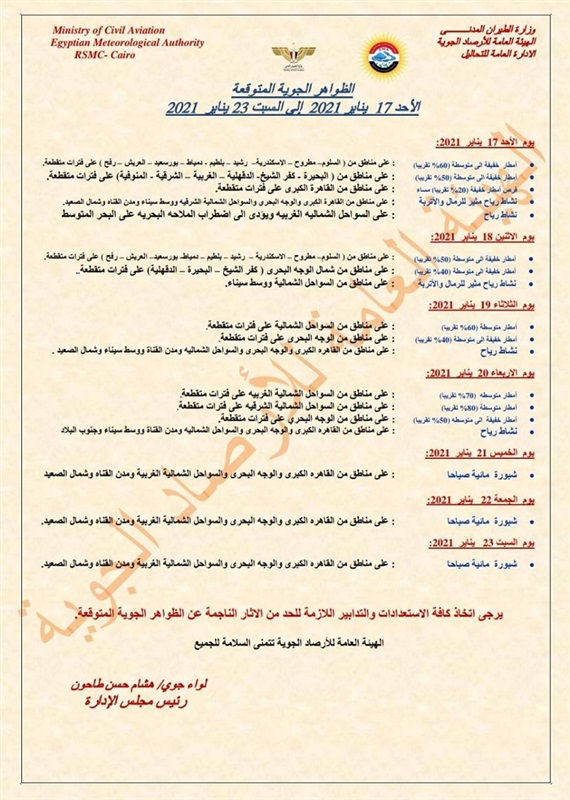 Ministry of Civil Aviation
Egyptian Meteorological Authority
RSMC- Cairo
وزارة الطيران المدنـــــى
الهيئة العامة للأرصاد الجوية
الادارة العامة للتحاليل
الظواهر الجوية المتوقعة
الأحد 17 يناير 2021 إلى السبت 23 يناير 2021
يوم الأحد 17 يناير 2021:
أمطار خفيفة الى متوسطة (60% تقريبا) : على مناطق من ( السلوم– مطروح – الاسكندرية– رشيد – بلطيم – دمياط– بورسعيد – العريش – رفح ) على فترات متقطعة.
أمطار خفيفة الى متوسطة (50% تقريبا) : على مناطق من ( البحيرة - كفر الشيخ– الدقهلية – الغربية – الشرقية - المنوفية) على فترات متقطعة.
فرص أمطار خفيفة (20% تقريبا) مساء : على مناطق من القاهرة الكبرى على فترات متقطعة.
نشاط رياح مثير للرمال والأتربة : على مناطق من القاهرة الكبرى والوجه البحرى والسواحل الشمالية الشرقيه ووسط سيناء ومدن القناه وشمال الصعيد.
نشاط رياح : على السواحل الشماليه الغربيه ويؤدى الى اضطراب الملاحه البحريه على البحر المتوسط
يوم الاثنين 18 يناير 2021:
أمطار خفيفة الى متوسطة (50% تقريبا) : على مناطق من ( السلوم– مطروح – الاسكندرية – رشيد – بلطيم – دمياط– بورسعيد – العريش – رفح ) على فترات متقطعة.
أمطار خفيفة الى متوسطة (40% تقريبا) : على مناطق من شمال الوجه البحرى ( كفر الشيخ – البحيرة – الدقهلية) على فترات متقطعة..
نشاط رياح مثير للرمال والأتربة : على مناطق من السواحل الشمالية ووسط سيناء.
يوم الثلاثاء 19 يناير 2021:
أمطار متوسطة (60% تقريبا) : على مناطق من السواحل الشمالية على فترات متقطعة.
أمطار خفيفة الى متوسطة (40% تقريبا) : على مناطق من الوجه البحرى على فترات متقطعة.
نشاط رياح : على مناطق من القاهره الكبرى والوجه البحرى والسواحل الشماليه ومدن القناة ووسط سيناء وشمال الصعيد .
يوم الاربعاء 20 يناير 2021:
أمطار متوسطه (70% تقريبا) : على مناطق من السواحل الشمالية الغربيه على فترات متقطعة.
أمطار متوسطة (80% تقريبا) : على مناطق من السواحل الشمالية الشرقيه على فترات متقطعة.
أمطار خفيفة الى متوسطة (50% تقريبا) : على مناطق من الوجه البحري على فترات متقطعة.
نشاط رياح : على مناطق من القاهره الكبرى والوجه البحرى والسواحل الشماليه ومدن القناة ووسط سيناء وجنوب البلاد
يوم الخميس 21 يناير 2021:
شبورة مائية صباحا : على مناطق من القاهره الكبرى والوجه البحرى والسواحل الشمالية الغربية ومدن القناه وشمال الصعيد
يوم الجمعة 22 يناير 2021:
شبورة مائية صباحا : على مناطق من القاهره الكبرى والوجه البحرى والسواحل الشمالية الغربية ومدن القناه وشمال الصعيد.
يوم السبت 23 يناير 2021:
شبورة مائية صباحا : على مناطق من القاهره الكبرى والوجه البحرى والسواحل الشمالية الغربية ومدن القناه وشمال الصعيد.
يرجى اتخاذ كافة الاستعدادات والتدابير اللازمة للحد من الاثار الناجمة عن الظواهر الجوية المتوقعة.
الهيئة العامة للأرصاد الجوية تتمنى السلامة للجميع
لواء جوي/ هشام حسن طاحون
رئيس مجلس الإدارة
الهيئة العامة للأرصاد الجوية